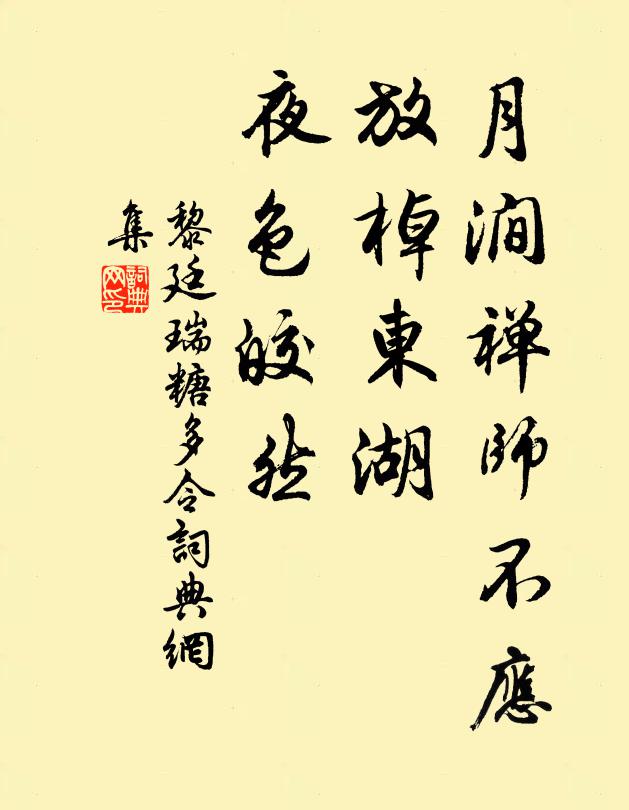 月澗禅師不應
放棹東湖
夜色皎然
黎廷瑞糖多令詞典網
集
詞典
网印